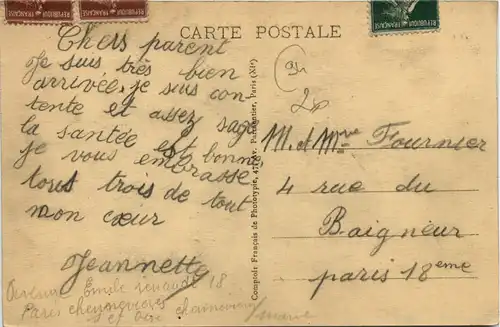 REPUBLIQUE FRANÇAISE
REPUBLIQUE FRANÇAISE
REPUBLIQUE FRANÇAISE
CARTE POSTALE
Chers parent
Je suis très bien
arrivée, je suis con-
tente et assez sage
la santée est bonne
je vous embrasse
tous trois de tout
mon cœur
Jeannette
Avenue Emile 18
Paris chennevieres
et Oise
Comptoir Français de Phototypie, 47, Av. Parmentier, Paris (XIe)
94
20
M. et Mme Fournier
4 rue du
Baigneur
paris 18eme